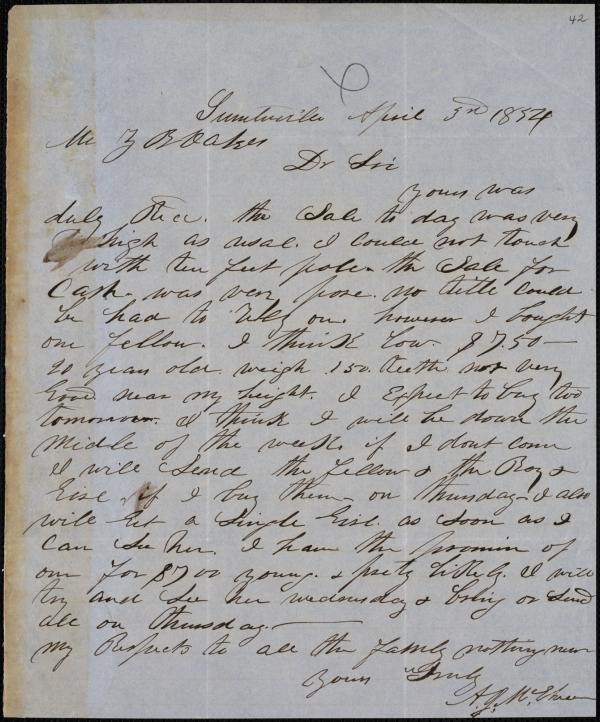 42
Sumterville April 3rd 1854
Mr Z B Oakes
Dr Sir
yours was
duly Recc. the Sale to day was very
high as usal. I could not touch
with ten feet pole. the Sale for
Cash was very pore. no title could
be had to on. however I bought
one fellow. I think low. $750—
20 years old. weigh 150. teeth not very
Good near my height. I Expect to buy two
tomorrow. I think I will be down the
Middle of the week. if I dont come
I will Send the fellow & the Boy &
Girl. if I buy them on thursday. I also
will Get a Single Girl. as soon as I
can See her. I have the promise of
one for $700 young. & prety likely. I will
try and See her wednesday & bring or Send
all on thursday.—
my Respects to all the family nothing new
yours Truly
A. J. McElveen